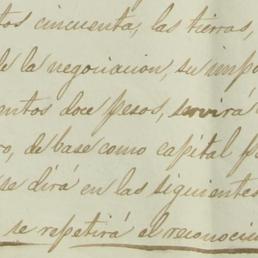 tos cincuenta, las tierras,
de la negociacion, su impo
entos doce pesos, servirá
o, de base como capital p
se dirá en las siguientes
se repetirá el reconoci